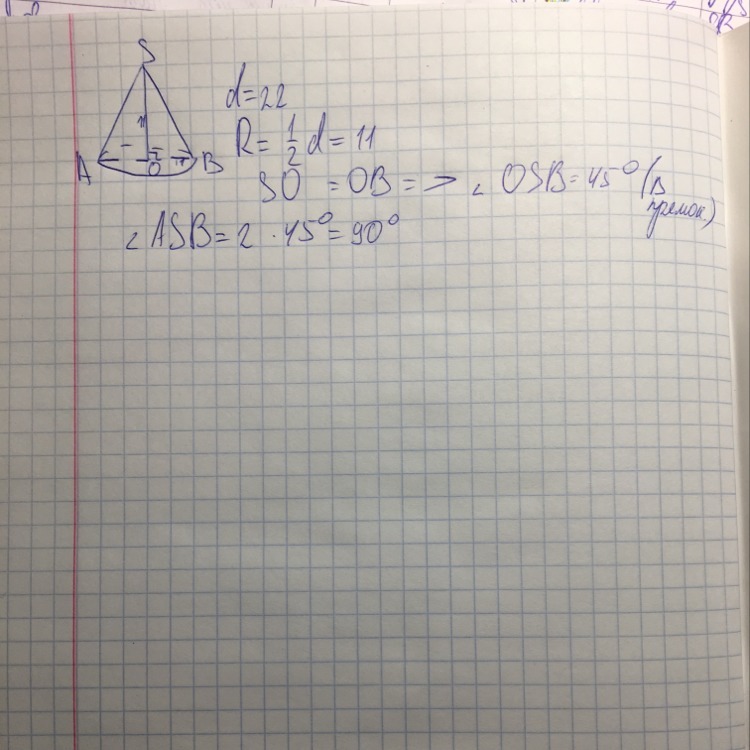 S
d=22
R= 1/2 d = 11
A O B
SO = OB => ∠ OSB = 45° (в
прямоу.)
∠ ASB = 2 · 45° = 90°